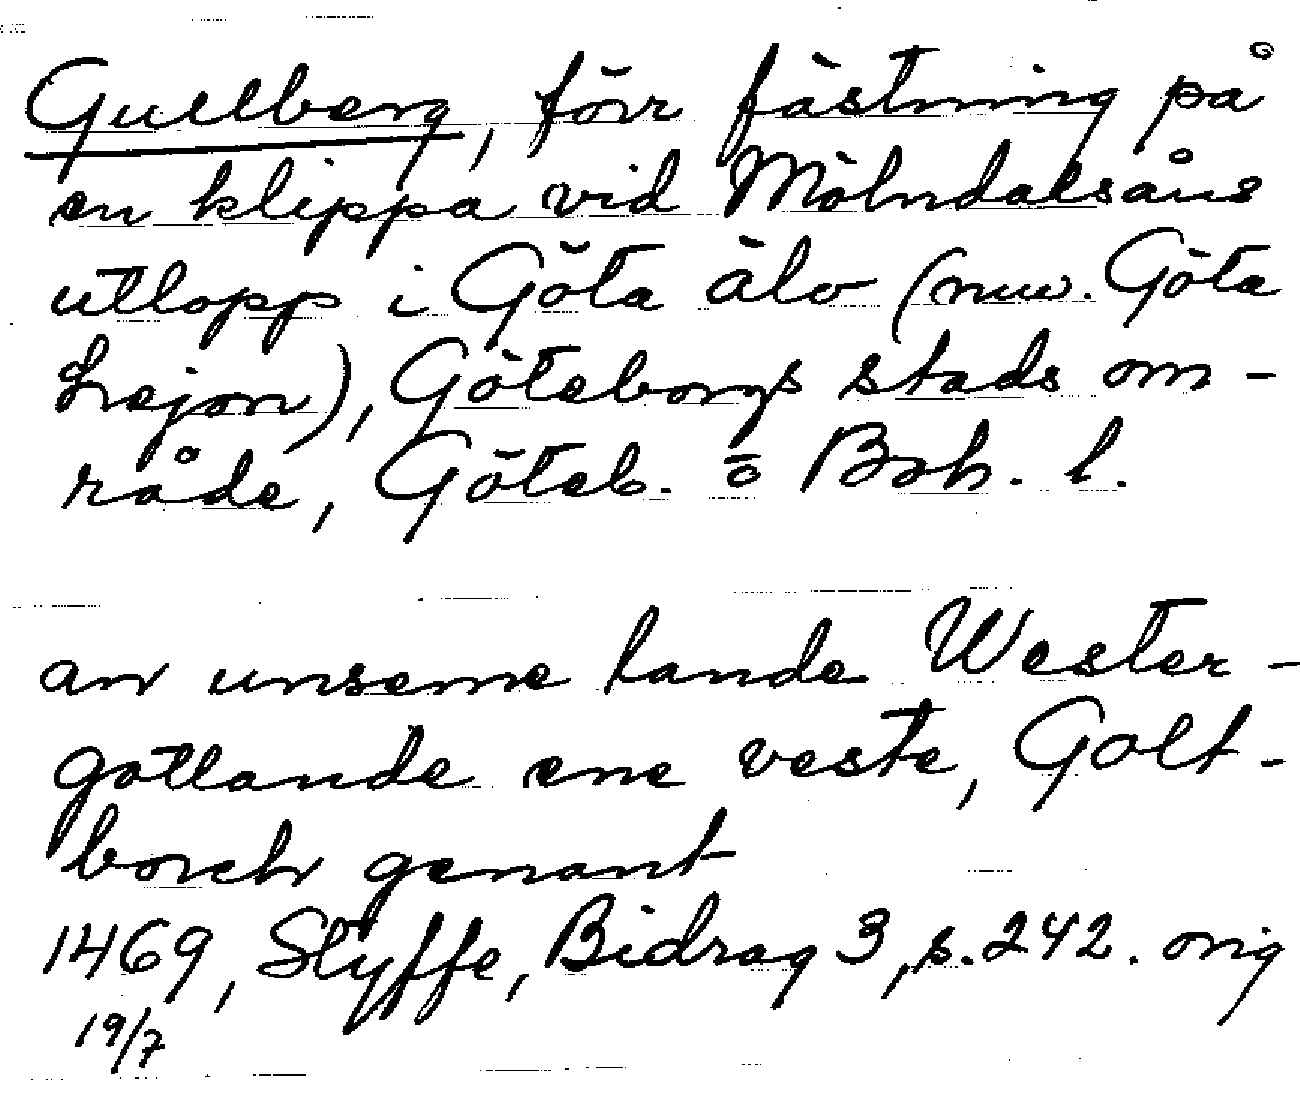 Gullberg, förr fästning på
en klippa vid Mölndalsåns
utlopp i Göta älv (nuv. Göta
Lejon), Göteborgs stads om-
råde, Göteb. o Boh. l.
an unseme lande Wester-
gotlande ene veste, Golt-
borch genant
1469, Styffe, Bidrag 3, s. 242. orig
19/7